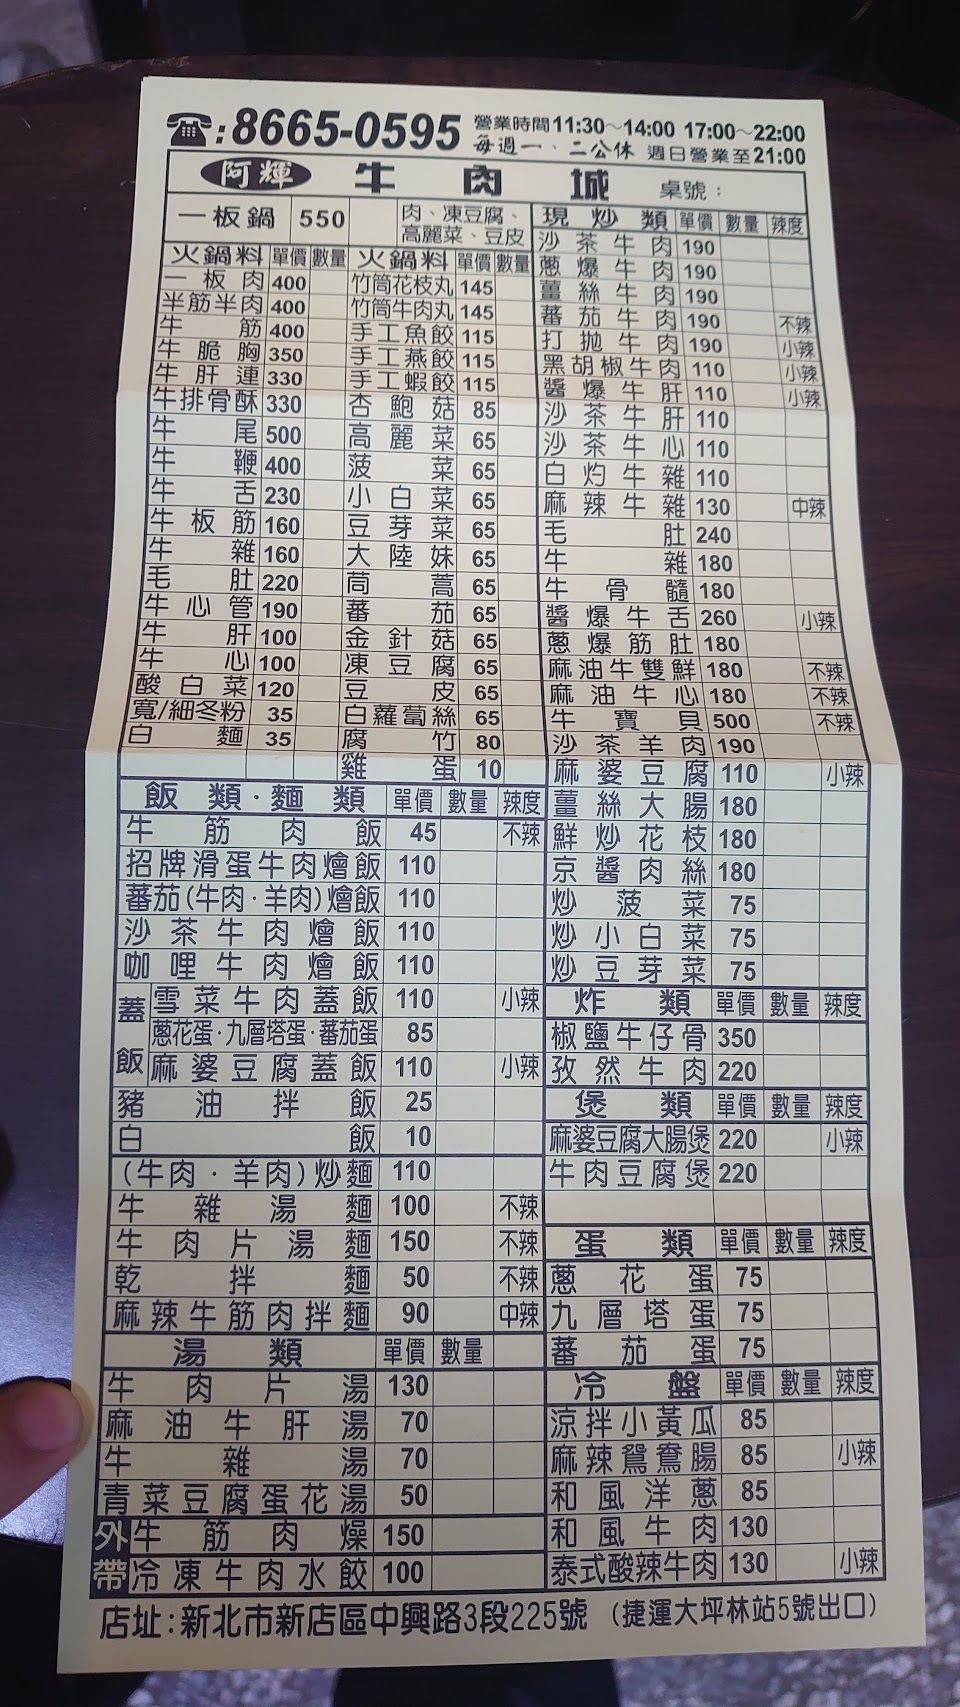 ☎:8665-0595 營業時間11:30~14:00 17:00~22:00
每週一、二公休 週日營業至21:00
阿輝 牛肉城 桌號:
一板鍋 550 肉、凍豆腐、高麗菜、豆皮
火鍋料 單價 數量
一板肉 400
半筋半肉 400
牛筋 400
牛脆胸 350
牛肝連 330
牛排骨酥 330
牛尾 500
牛鞭 400
牛舌 230
牛板筋 160
牛雜 160
毛肚 220
牛心管 190
牛肝 100
牛心 100
酸白菜 120
寬/細冬粉 35
白麵 35
火鍋料 單價 數量
竹筒花枝丸 145
竹筒牛肉丸 145
手工魚餃 115
手工燕餃 115
手工蝦餃 115
杏鮑菇 85
高麗菜 65
菠菜 65
小白菜 65
豆芽菜 65
大陸妹 65
茼蒿 65
蕃茄 65
金針菇 65
凍豆腐 65
豆皮 65
白蘿蔔絲 65
腐竹 80
雞蛋 10
飯類·麵類 單價 數量 辣度
牛筋肉飯 45 不辣
招牌滑蛋牛肉燴飯 110
蕃茄(牛肉·羊肉)燴飯 110
沙茶牛肉燴飯 110
咖哩牛肉燴飯 110
蓋飯
雪菜牛肉蓋飯 110 小辣
蔥花蛋·九層塔蛋·蕃茄蛋 85
麻婆豆腐蓋飯 110 小辣
豬油拌飯 25
白飯 10
(牛肉·羊肉)炒麵 110
牛雜湯麵 100 不辣
牛肉片湯麵 150 不辣
乾拌麵 50 不辣
麻辣牛筋肉拌麵 90 中辣
湯類 單價 數量
牛肉片湯 130
麻油牛肝湯 70
牛雜湯 70
青菜豆腐蛋花湯 50
外帶
牛筋肉燥 150
冷凍牛肉水餃 100
現炒類 單價 數量 辣度
沙茶牛肉 190
蔥爆牛肉 190
薑絲牛肉 190
蕃茄牛肉 190 不辣
打拋牛肉 190 小辣
黑胡椒牛肉 110 小辣
醬爆牛肝 110 小辣
沙茶牛肝 110
沙茶牛心 110
白灼牛雜 110
麻辣牛雜 130 中辣
毛肚 240
牛雜 180
牛骨髓 180
醬爆牛舌 260 小辣
蔥爆筋肚 180
麻油牛雙鮮 180 不辣
麻油牛心 180 不辣
牛寶貝 500 不辣
沙茶羊肉 190
麻婆豆腐 110 小辣
薑絲大腸 180
鮮炒花枝 180
京醬肉絲 180
炒菠菜 75
炒小白菜 75
炒豆芽菜 75
炸類 單價 數量 辣度
椒鹽牛仔骨 350
孜然牛肉 220
煲類 單價 數量 辣度
麻婆豆腐大腸煲 220 小辣
牛肉豆腐煲 220
蛋類 單價 數量 辣度
蔥花蛋 75
九層塔蛋 75
蕃茄蛋 75
冷盤 單價 數量 辣度
涼拌小黃瓜 85
麻辣鴛鴦腸 85 小辣
和風洋蔥 85
和風牛肉 130
泰式酸辣牛肉 130 小辣
店址:新北市新店區中興路3段225號 (捷運大坪林站5號出口)